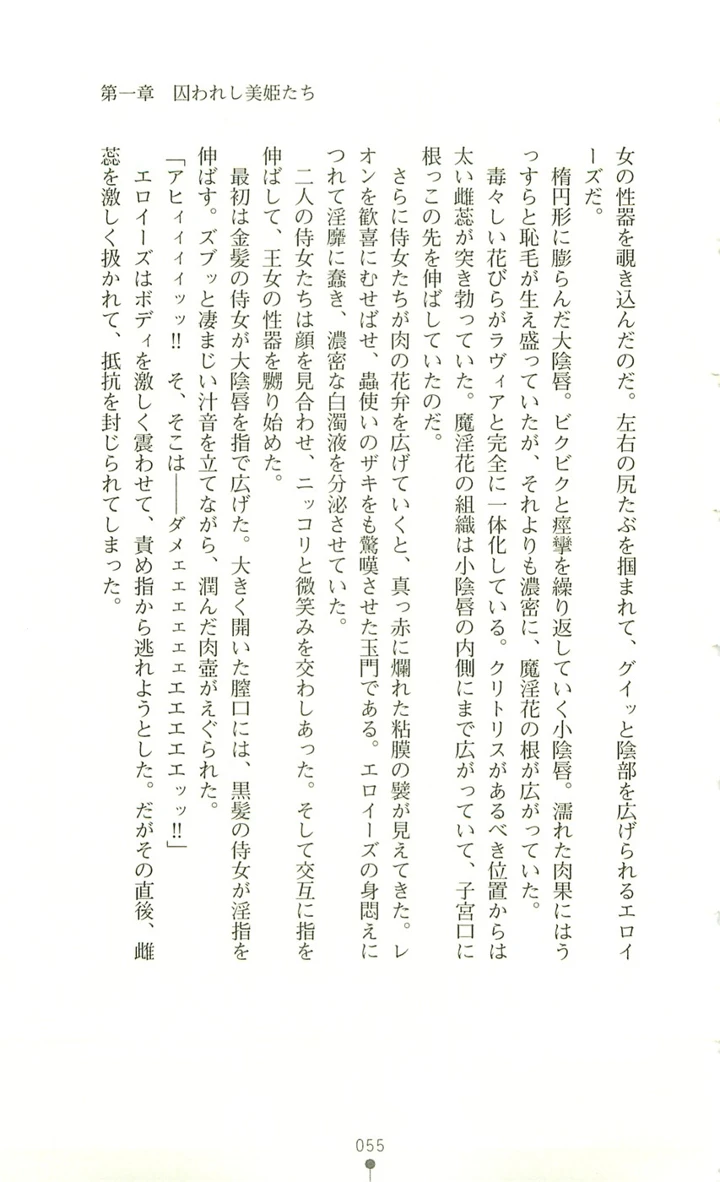 第一章　囚われし美姫たち
女の性器を覗き込んだのだ。左右の尻たぶを掴まれて、グイッと陰部を広げられるエロイ
ーズだ。
　楕円形に膨らんだ大陰唇。ビクビクと痙攣を繰り返していく小陰唇。濡れた肉果にはう
っすらと恥毛が生え盛っていたが、それよりも濃密に、魔淫花の根が広がっていた。
　毒々しい花びらがラヴィアと完全に一体化している。クリトリスがあるべき位置からは
太い雌蕊が突き勃っていた。魔淫花の組織は小陰唇の内側にまで広がっていて、子宮口に
根っこの先を伸ばしていたのだ。
　さらに侍女たちが肉の花弁を広げていくと、真っ赤に爛れた粘膜の襞が見えてきた。レ
オンを歓喜にむせばせ、蟲使いのザキをも驚嘆させた玉門である。エロイーズの身悶えに
つれて淫靡に蠢き、濃密な白濁液を分泌させていた。
　二人の侍女たちは顔を見合わせ、ニッコリと微笑みを交わしあった。そして交互に指を
伸ばして、王女の性器を嬲り始めた。
　最初は金髪の侍女が大陰唇を指で広げた。大きく開いた膣口には、黒髪の侍女が淫指を
伸ばす。ズブッと凄まじい汁音を立てながら、潤んだ肉壺がえぐられた。
「アヒィィィィッッ‼　そ、そこは――ダメェェェェェェエエエエエッッ‼」
　エロイーズはボディを激しく震わせて、責め指から逃れようとした。だがその直後、雌
蕊を激しく扱かれて、抵抗を封じられてしまった。
055